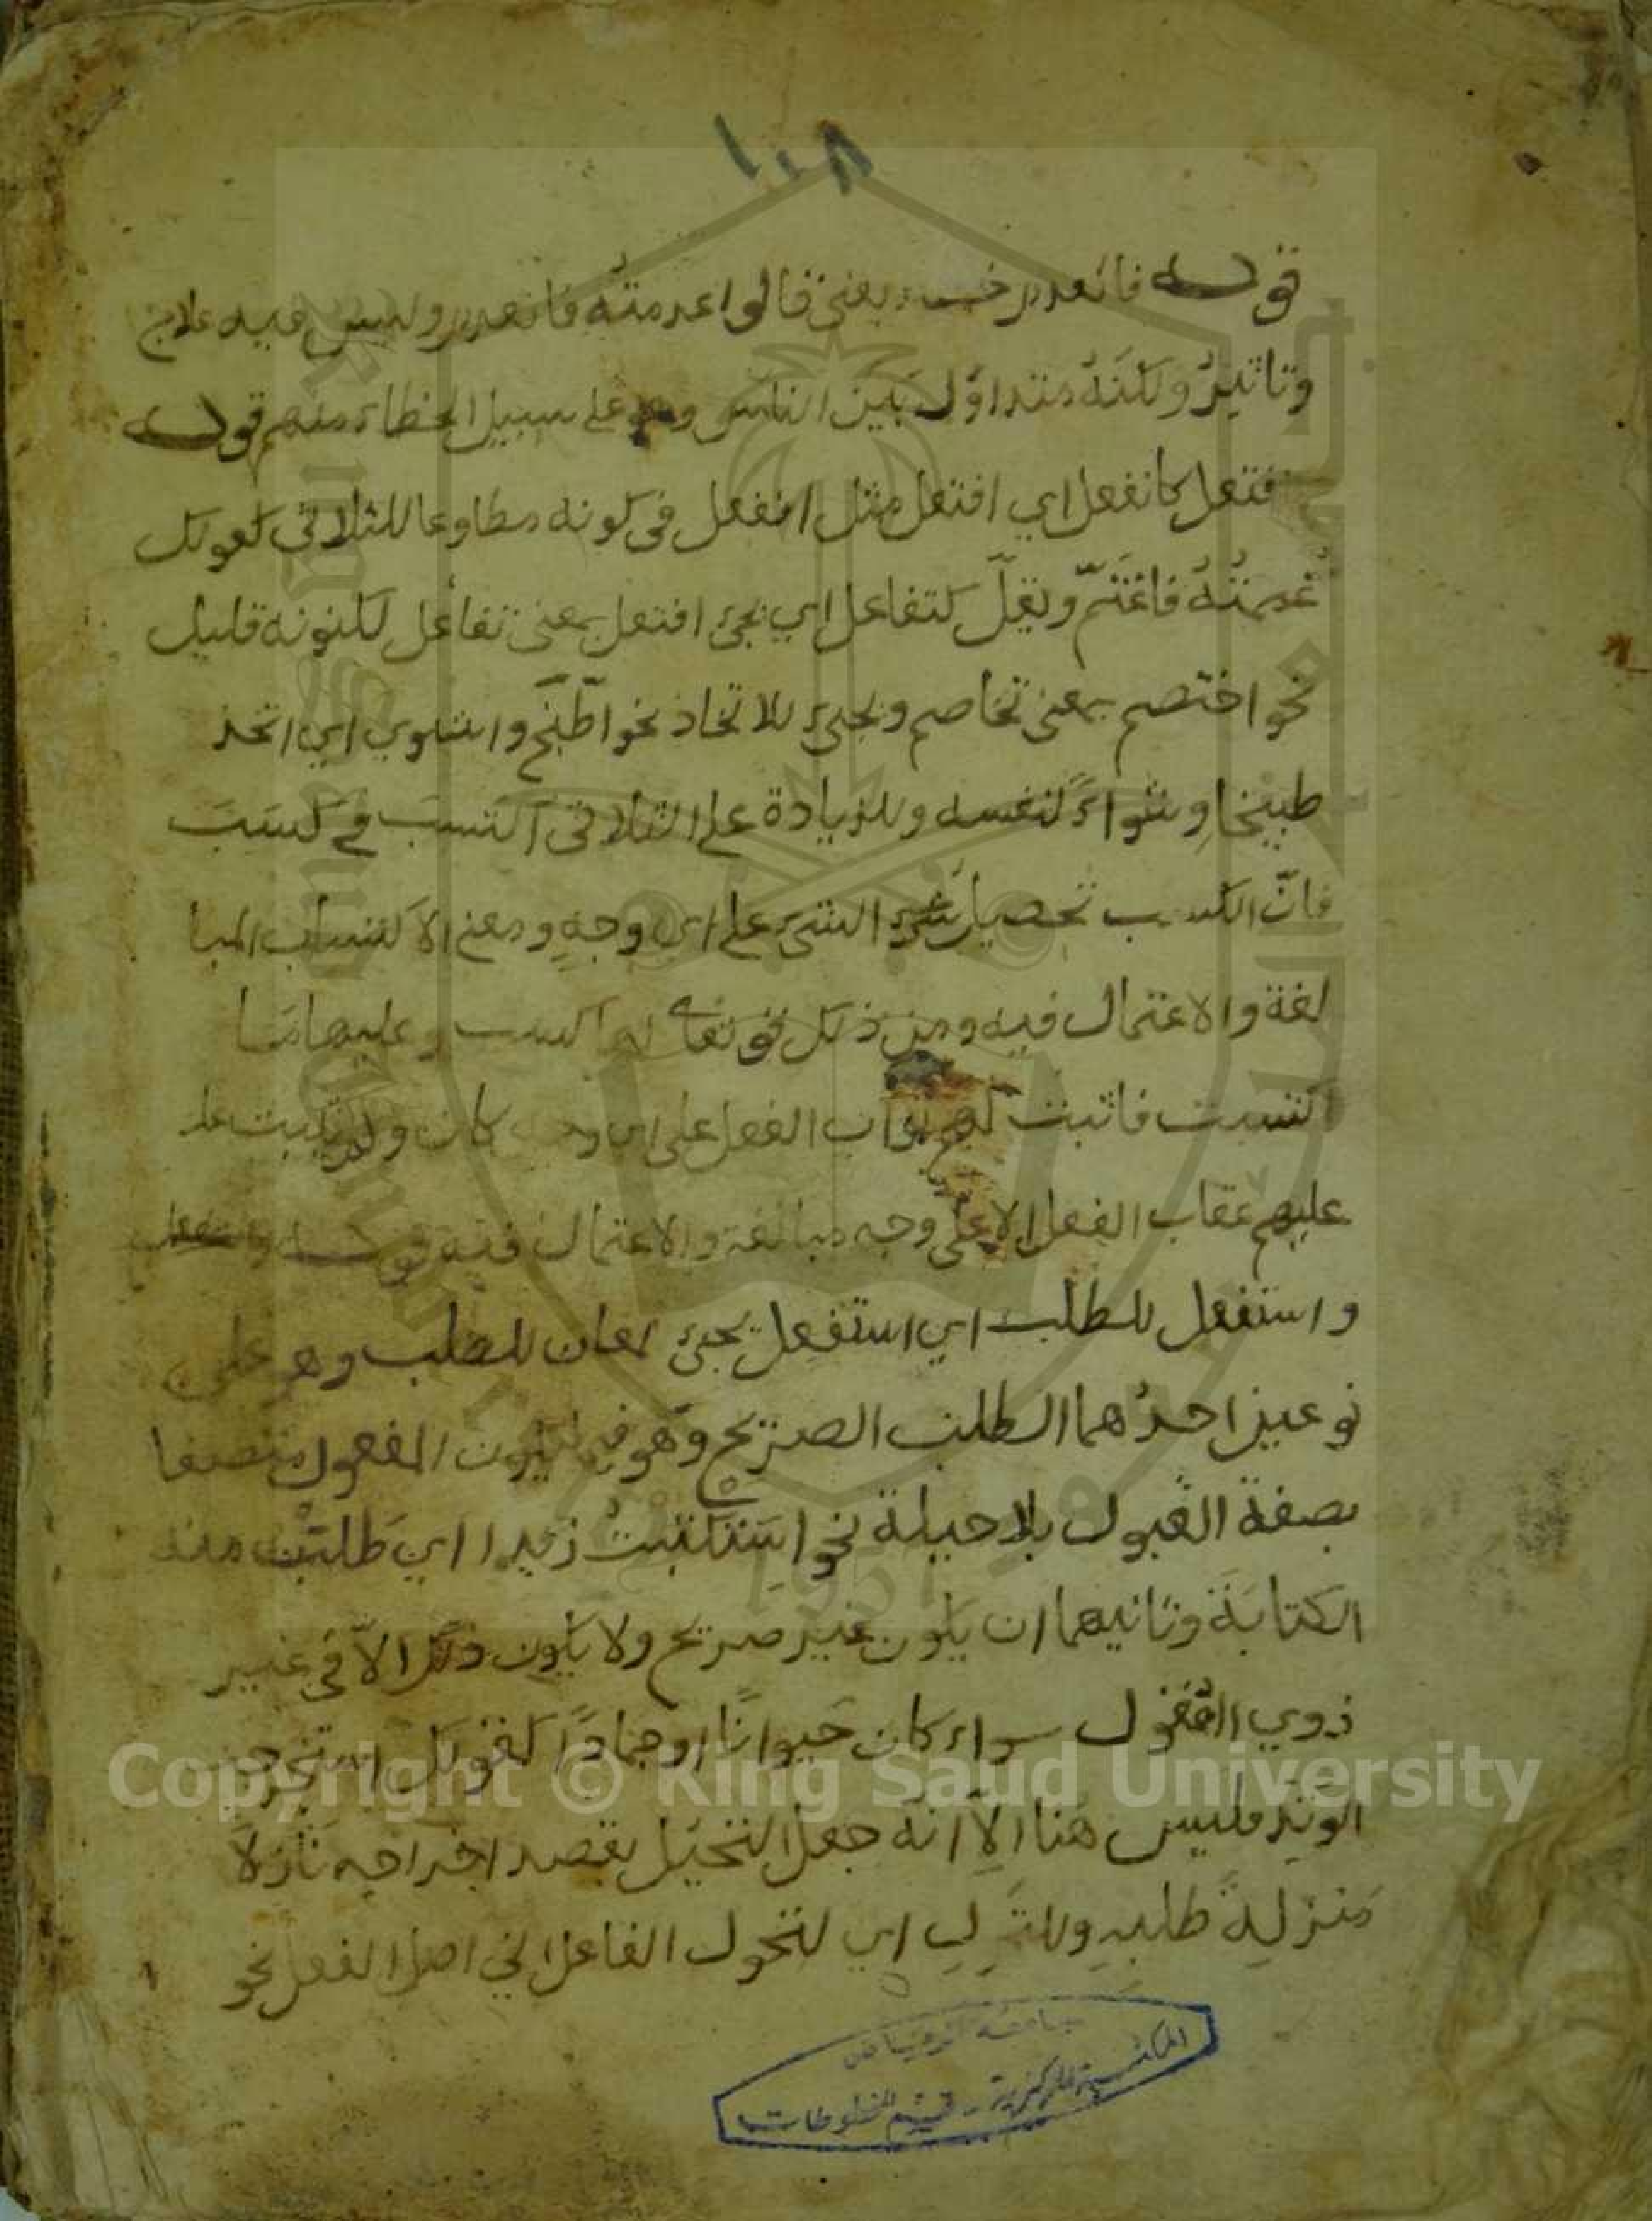 ١٠٨
قوله فانعدم خطاء يعني قالوا عدمته فانعدم وليس فيه علاج
وتاثير ولكنه متداول بين الناس وهو على سبيل الخطاء منهم قوله
فتعل كانفعل اي افتعل مثل انفعل في كونه مطاوعا للثلاثي كقولك
غممته فاغتم ويقل كتفاعل اي يجئ افتعل بمعنى تفاعل لكنونه قليل
نحو اختصم بمعنى تخاصم ويجئ للاتخاذ نحو اطبخ واشتوي اي اتخذ
طبيخا وشواء لنفسه وللزيادة على الثلاثي اكتسب في كسب
فان الكسب تحصيل الشئ على اي وجه ومعنى الاكتساب المبا
لغة والاعتمال فيه ومن ذلك قوله تعالى لها ما كسبت وعليها ما
اكتسبت فاثبت لهم ثواب الفعل على اي وجه كان ولم يثبت
عليهم عقاب الفعل الا على وجه مبالغة والاعتمال فيه قوله
واستفعل للطلب اي استفعل يجئ لمعان للطلب وهو على
نوعين احدهما الطلب الصريح وهو فيما يكون المفعول متصفا
بصفة القبول بلا حيلة نحو استكتبت زيدا اي طلبت منه
الكتابة وثانيهما ان يكون غير صريح ولا يكون ذلك الا في غير
ذوي العقول سواء كان حيوانا او جمادا كقولك استخرجت
الوتد فليس هنا الا انه جعل التحيل بقصد اخراجه نازلا
منزلة طلبه وللتحول اي لتحول الفاعل الى اصل الفعل نحو
جامعة الرياض
المكتبة المركزية - قسم المخطوطات
Copyright © King Saud University
1957